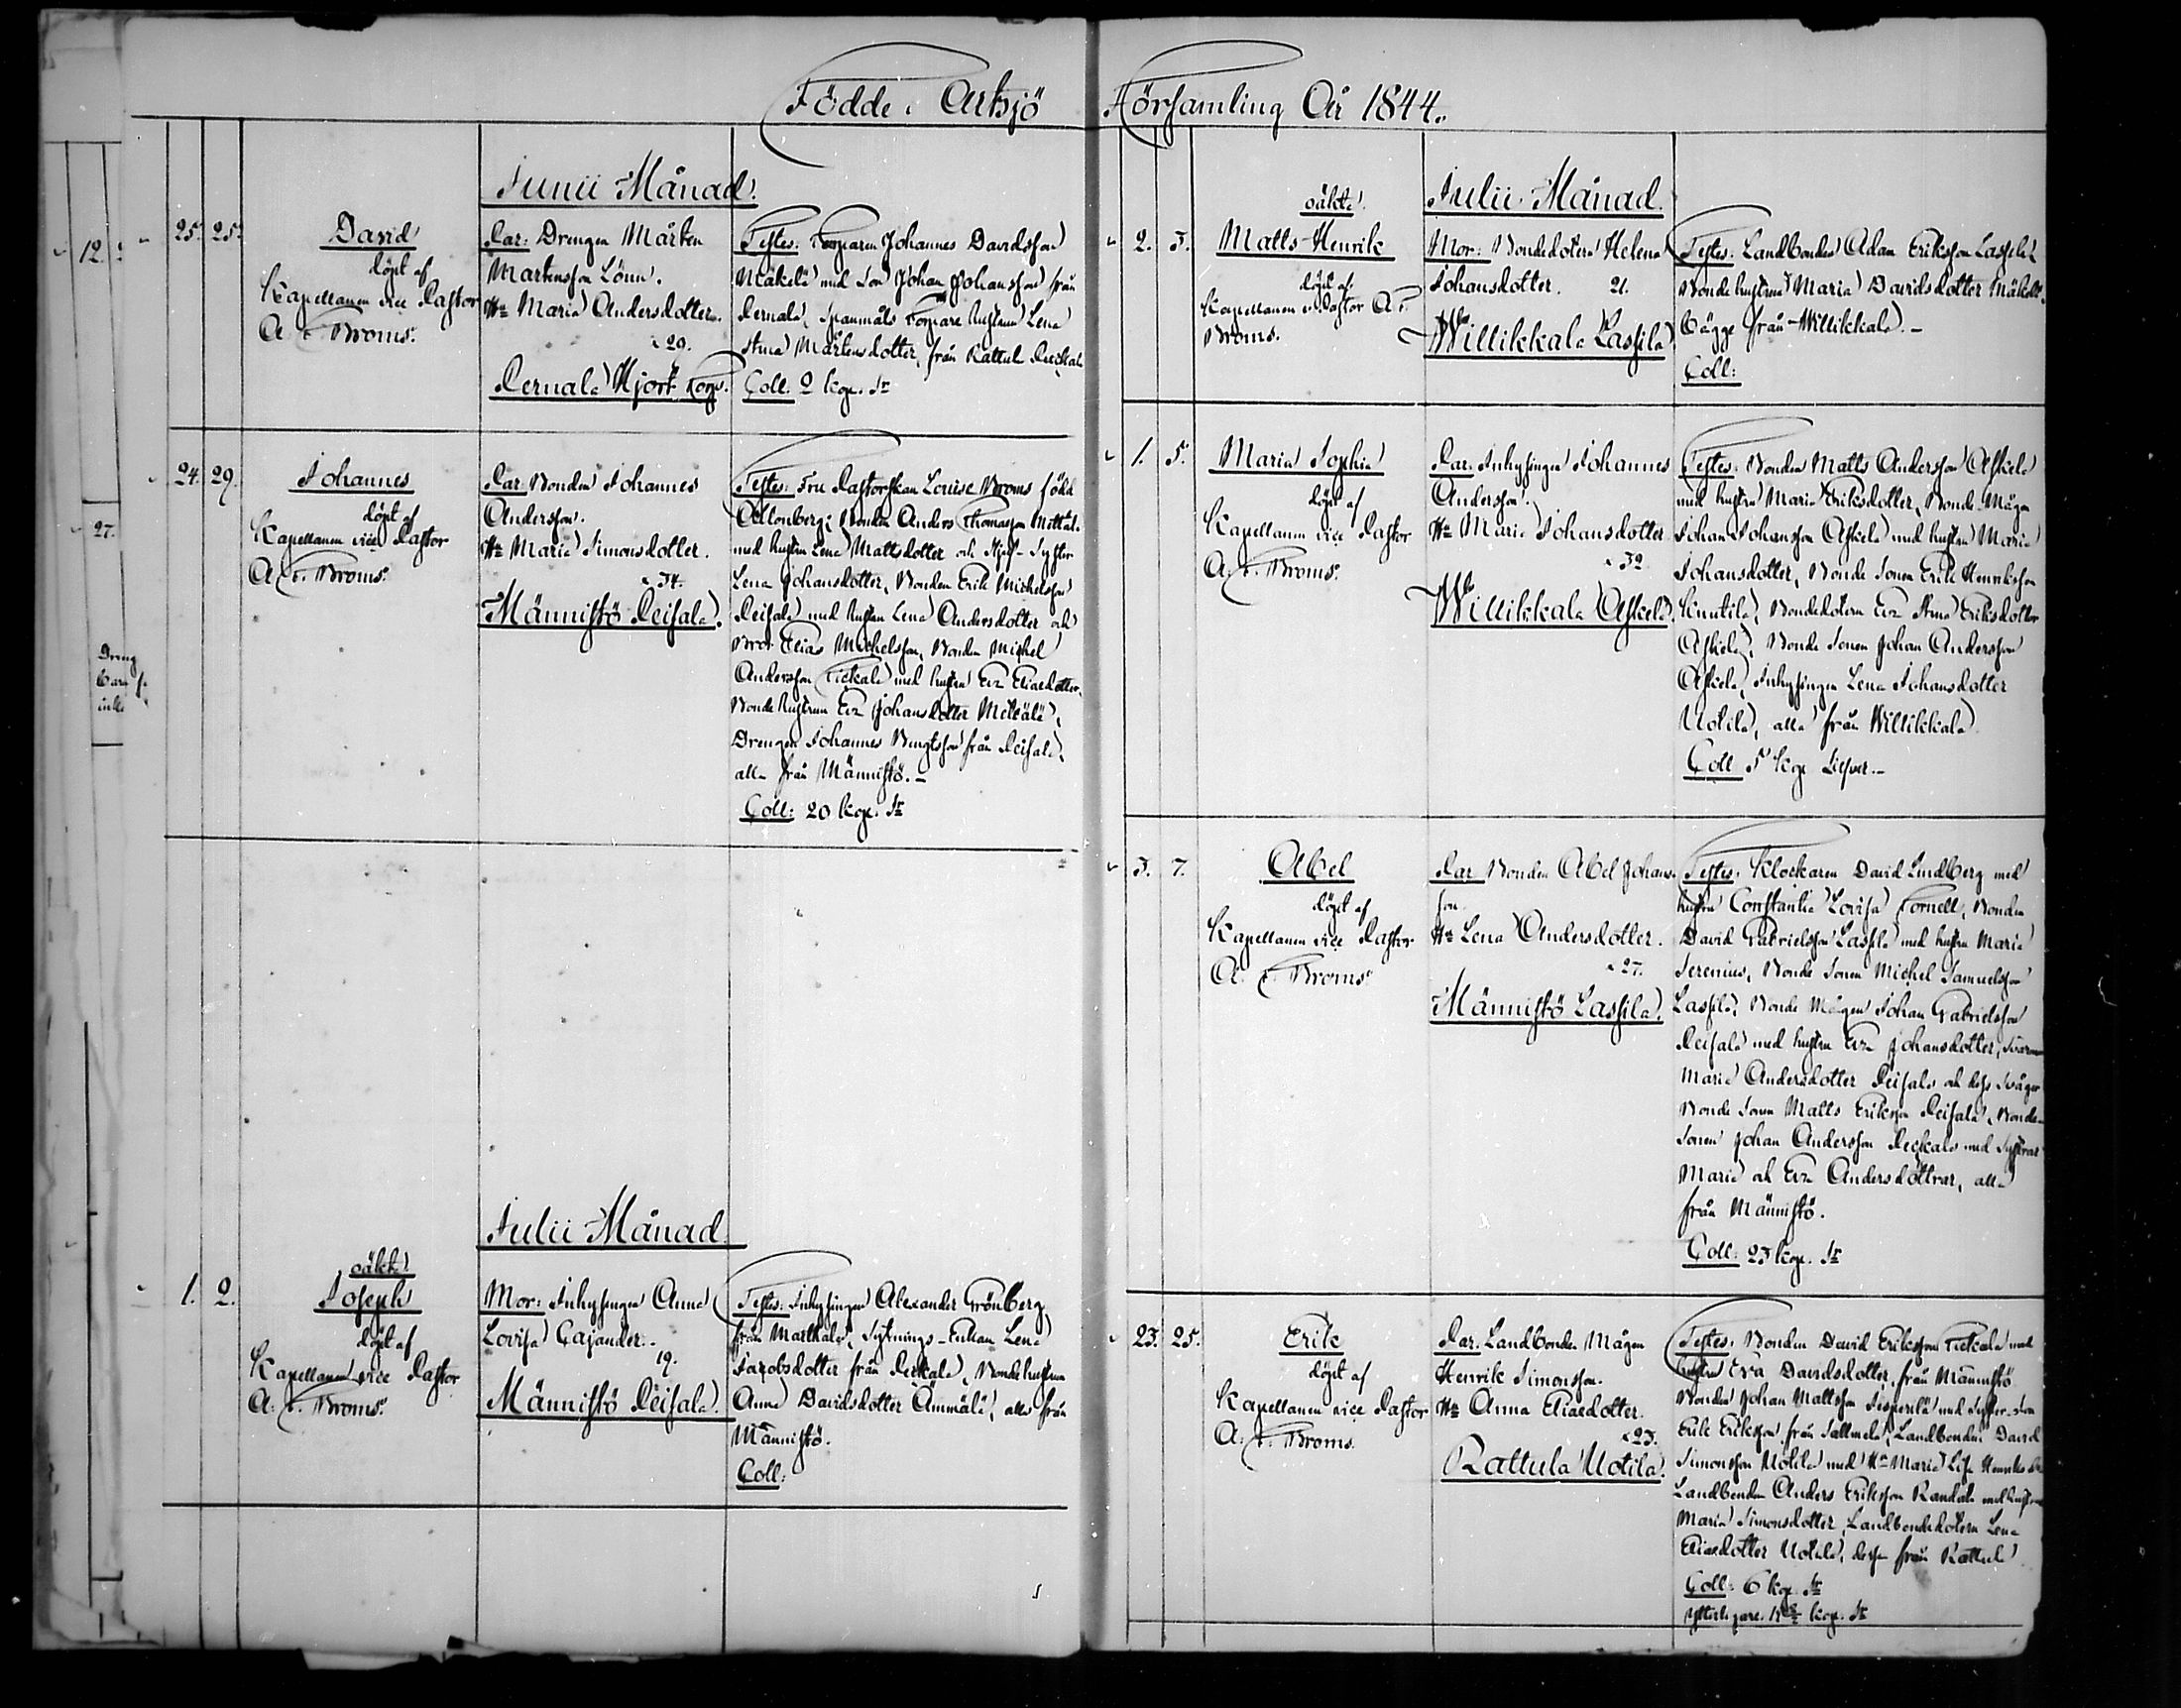 Födde i Artsjö Församling År 1844.
12.
27.
Dreng
Junii Månad.
25. 25.
David
döpt af
Kapellanen vice Pastor
A. F. Broms.
Par: Drengen Mårten
Martensson Lönn.
Hu Maria Andersdotter.
29.
Pernala Hjort Torp.
Testes: Torparen Johannes Davidsson
Mäkelä med Son Johan Johansson från
Pernala, Spanmåls Torpare hustrun Lena
Stina Mårtensdotter, från Rattula
Coll: 2 kop. Sr
24. 29.
Johannes
döpt af
Kapellanen vice Pastor
A. F. Broms.
Par: Bonden Johannes
Andersson.
Hu Maria Simonsdotter.
34.
Männistö Peisala.
Testes: Fru Pastorskan Louise Broms född
Allonberg; Bonden Anders Thomasson
med hustru Lena Mattsdotter och Styf-Syster
Lena Johansdotter, Bonden Erik Michelsson
Peisala med hustru Lena Andersdotter och
Bror Elias Michelsson, Bonden Michel
Andersson med hustru Eva Eliaedotter,
Bonde hustrun Eva Johansdotter
Drengen Johannes Bengtsson från Peisala,
alla från Männistö.-
Coll: 20 kop. Sr
Julii Månad.
oäkta
1. 2.
Joseph
döpt af
Kapellanen vice Pastor
A. F. Broms.
Mor: Inhysingen Anna
Lovisa Cajander.-
19.
Männistö Peisala.
Testes: Inhysingen Alexander Grönberg
från Sytnings-Enkan Lena
Jacobsdotter från Bonde hustrun
Anna Davidsdotter Ämmälä, alla från
Männistö.
Coll:
Julii Månad.
oäkta
2. 3.
Matts Henrik
döpt af
Kapellanen v. Pastor A. F.
Broms.
Mor: Bondedotern Helena
Johansdotter. 21.
Willikkala Lassila
Testes: Landbonden Adam Eriksson Lassila
Bonde hustrun Maria Davidsdotter
bägge från Willikkala.-
Coll:
1. 5.
Maria Sophia
döpt af
Kapellanen vice Pastor
A. F. Broms.
Par. Inhysingen Johannes
Andersson.
Hu Maria Johansdotter
32
Willikkala Askela.
Testes: Bonden Matts Andersson Askela
med hustru Maria Eriksdotter, Bonde Mågen
Johan Johansson Askela med hustru Maria
Johansdotter, Bonde Sonen Erik Henriksson
Knutila, Bondedotern Eva Stina Eriksdotter
Askela, Bonde Sonen Johan Andersson
Askela, Inhysingen Lena Johansdotter
Uotila, alla från Willikkala
Coll 5 kop Silfver.-
3. 7.
Abel
döpt af
Kapellanen vice Pastor
A. F. Broms.
Par Bonden Abel Johans-
son
Hu Lena Andersdotter.
27.
Männistö Lassila.
Testes: Klockaren David Lindberg med
hustru Constantia Lovisa Fornell, Bonden
David Gabrielsson Lassila med hustru Maria
Serenius, Bonde Sonen Michel Samuelsson
Lassila, Bonde Mågen Johan Gabrielsson
Peisala med hustru Eva Johansdotter,
Maria Andersdotter Peisala och dess Svåger
Bonde Sonen Matts Eriksson Peisala, Bonde
Sonen Johan Andersson med Systrar
Maria och Eva Andersdöttrar, alla
från Männistö.
Coll: 23 kop. Sr
23. 25.
Erik
döpt af
Kapellanen vice Pastor
A. F. Broms.
Par. Landbonde Mågen
Henrik Simonsson.
Hu Anna Eliaedotter.
23.
Rattula Uotila.
Testes: Bonden David Eriksson med
hustru Eva Davidsdotter, från Männistö
Bonden Johan Mattsson med Syster-Son
Erik Eriksson från Sallmela, Landbonden David
Simonsson Uotila med Hu Maria Lisa
Landbonden Anders Eriksson Randala med hustru
Maria Simonsdotter, Landbondedotern Lena
Eliaedotter Uotila, dessa från Rattula
Coll: 6 kop Sr
Ytterligare kop. Sr